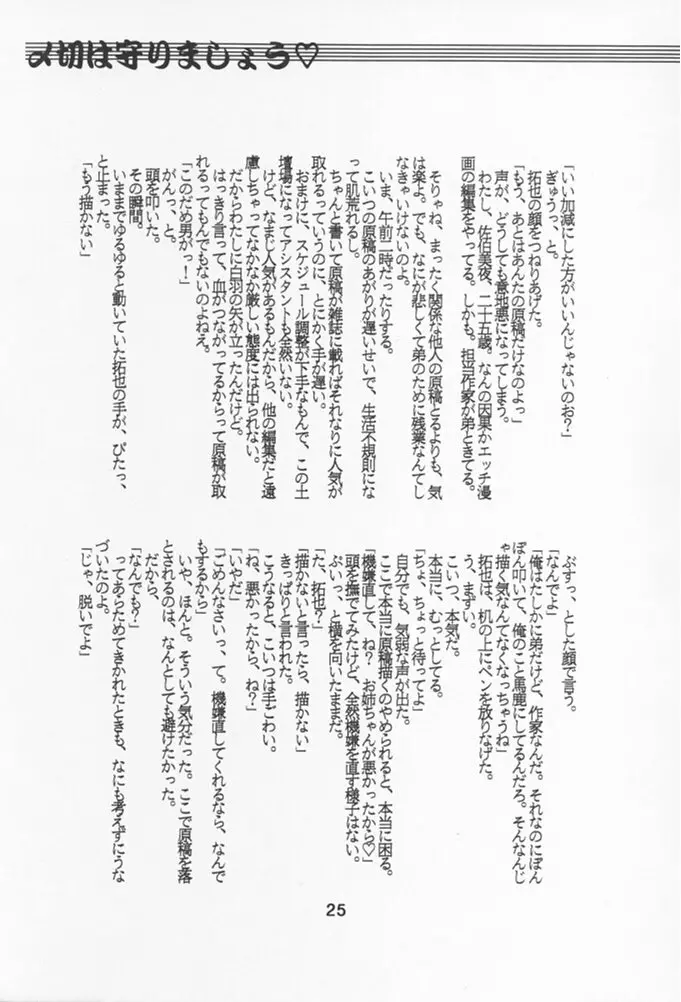 〆切は守りましょう♡
「いい加減にした方がいいんじゃないのお?」
ぎゅうっ、と。
拓也の顔をつねりあげた。
「もう、あとはあんたの原稿だけなのよっ」
声が、どうしても意地悪になってしまう。
わたし、佐伯美夜、二十五歳。なんの因果かエッチ漫
画の編集をやってる。しかも。担当作家が弟ときてる。
そりゃね、まったく関係な他人の原稿とるよりも、気
は楽よ。でも、なにが悲しくて弟のために残業なんてし
なきゃいけないのよ。
いま、午前二時だったりする。
こいつの原稿のあがりが遅いせいで、生活不規則にな
って肌荒れるし。
ちゃんと書いて原稿が雑誌に載ればそれなりに人気が
取れるっていうのに、とにかく手が遅い。
おまけに、スケジュール調整が下手なもんで、この土
壇場になってアシスタントも全然いない。
けど、なまじ人気があるもんだから、他の編集だと遠
慮しちゃってなかなか厳しい態度には出られない。
だからわたしに白羽の矢が立ったんだけど。
はっきり言って、血がつながってるからって原稿が取
れるってもんでもないのよねえ。
「このだめ男がっ!」
がんっ、と。
頭を叩いた。
その瞬間。
いままでゆるゆると動いていた拓也の手が、ぴたっ、
と止まった。
「もう描かない」
ぶすっ、とした顔で言う。
「なんでよ」
「俺はたしかに弟だけど、作家なんだ。それなのにぽん
ぽん叩いて、俺のこと馬鹿にしてるんだろ。そんなんじ
ゃ描く気なんてなくなっちゃうね」
拓也は、机の上にペンを放りなげた。
う、まずい。
こいつ、本気だ。
本当に、むっとしてる。
「ちょ、ちょっと待ってよ」
自分でも、気弱な声が出た。
ここで本当に原稿描くのやめられると、本当に困る。
「機嫌直して、ね? お姉ちゃんが悪かったから♡」
頭を撫でてみたけど、全然機嫌を直す様子はない。
ぷいっ、と横を向いたままだ。
「た、拓也?」
「描かないと言ったら、描かない」
きっぱりと言われた。
こうなると、こいつは手ごわい。
「ね、悪かったから、ね?」
「いやだ」
「ごめんなさいっ、て。機嫌直してくれるなら、なんで
もするから」
いや、ほんと。そういう気分だった。ここで原稿を落
とされるのは、なんとしても避けたかった。
だから、
「なんでも?」
ってあらためてきかれたときも、なにも考えずにうな
づいたのよ。
「じゃ、脱いでよ」
25